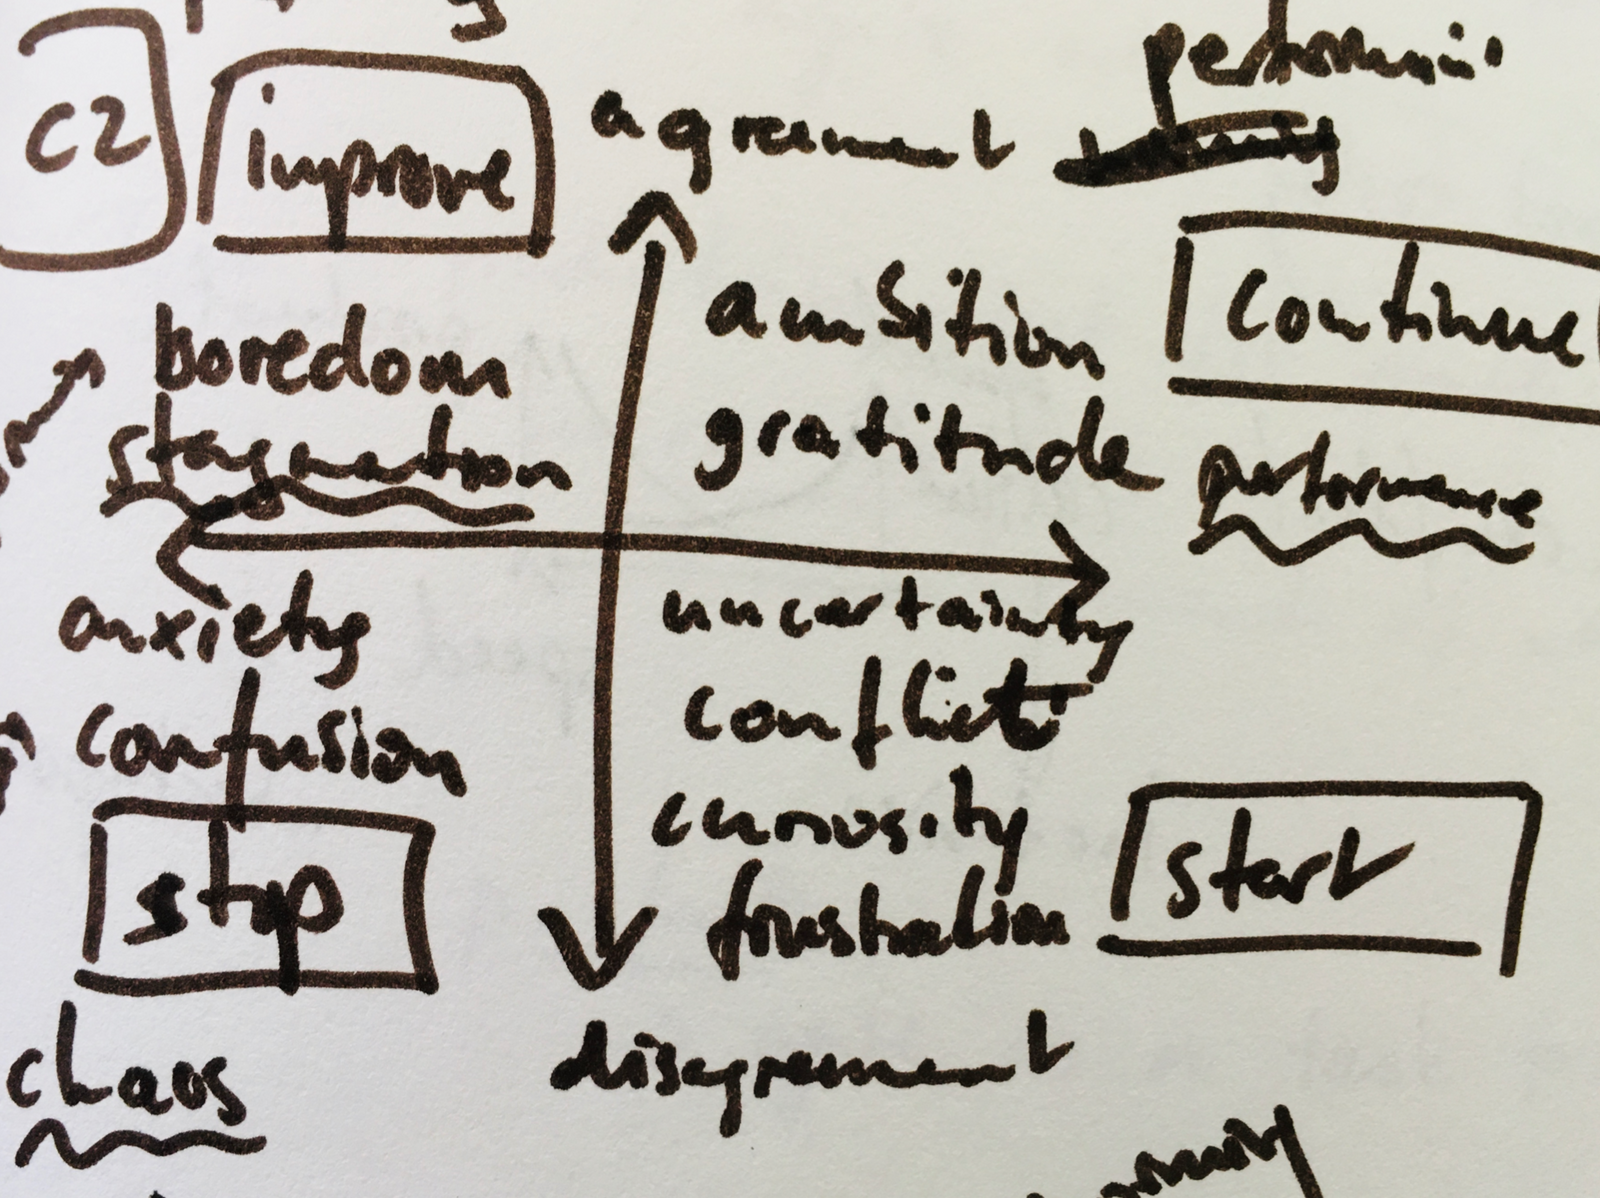 C2
improve
agreement
boredom
stagnation
ambition
gratitude
continue
performance
anxiety
confusion
stop
chaos
uncertainty
conflict
curiosity
frustration
start
disagreement